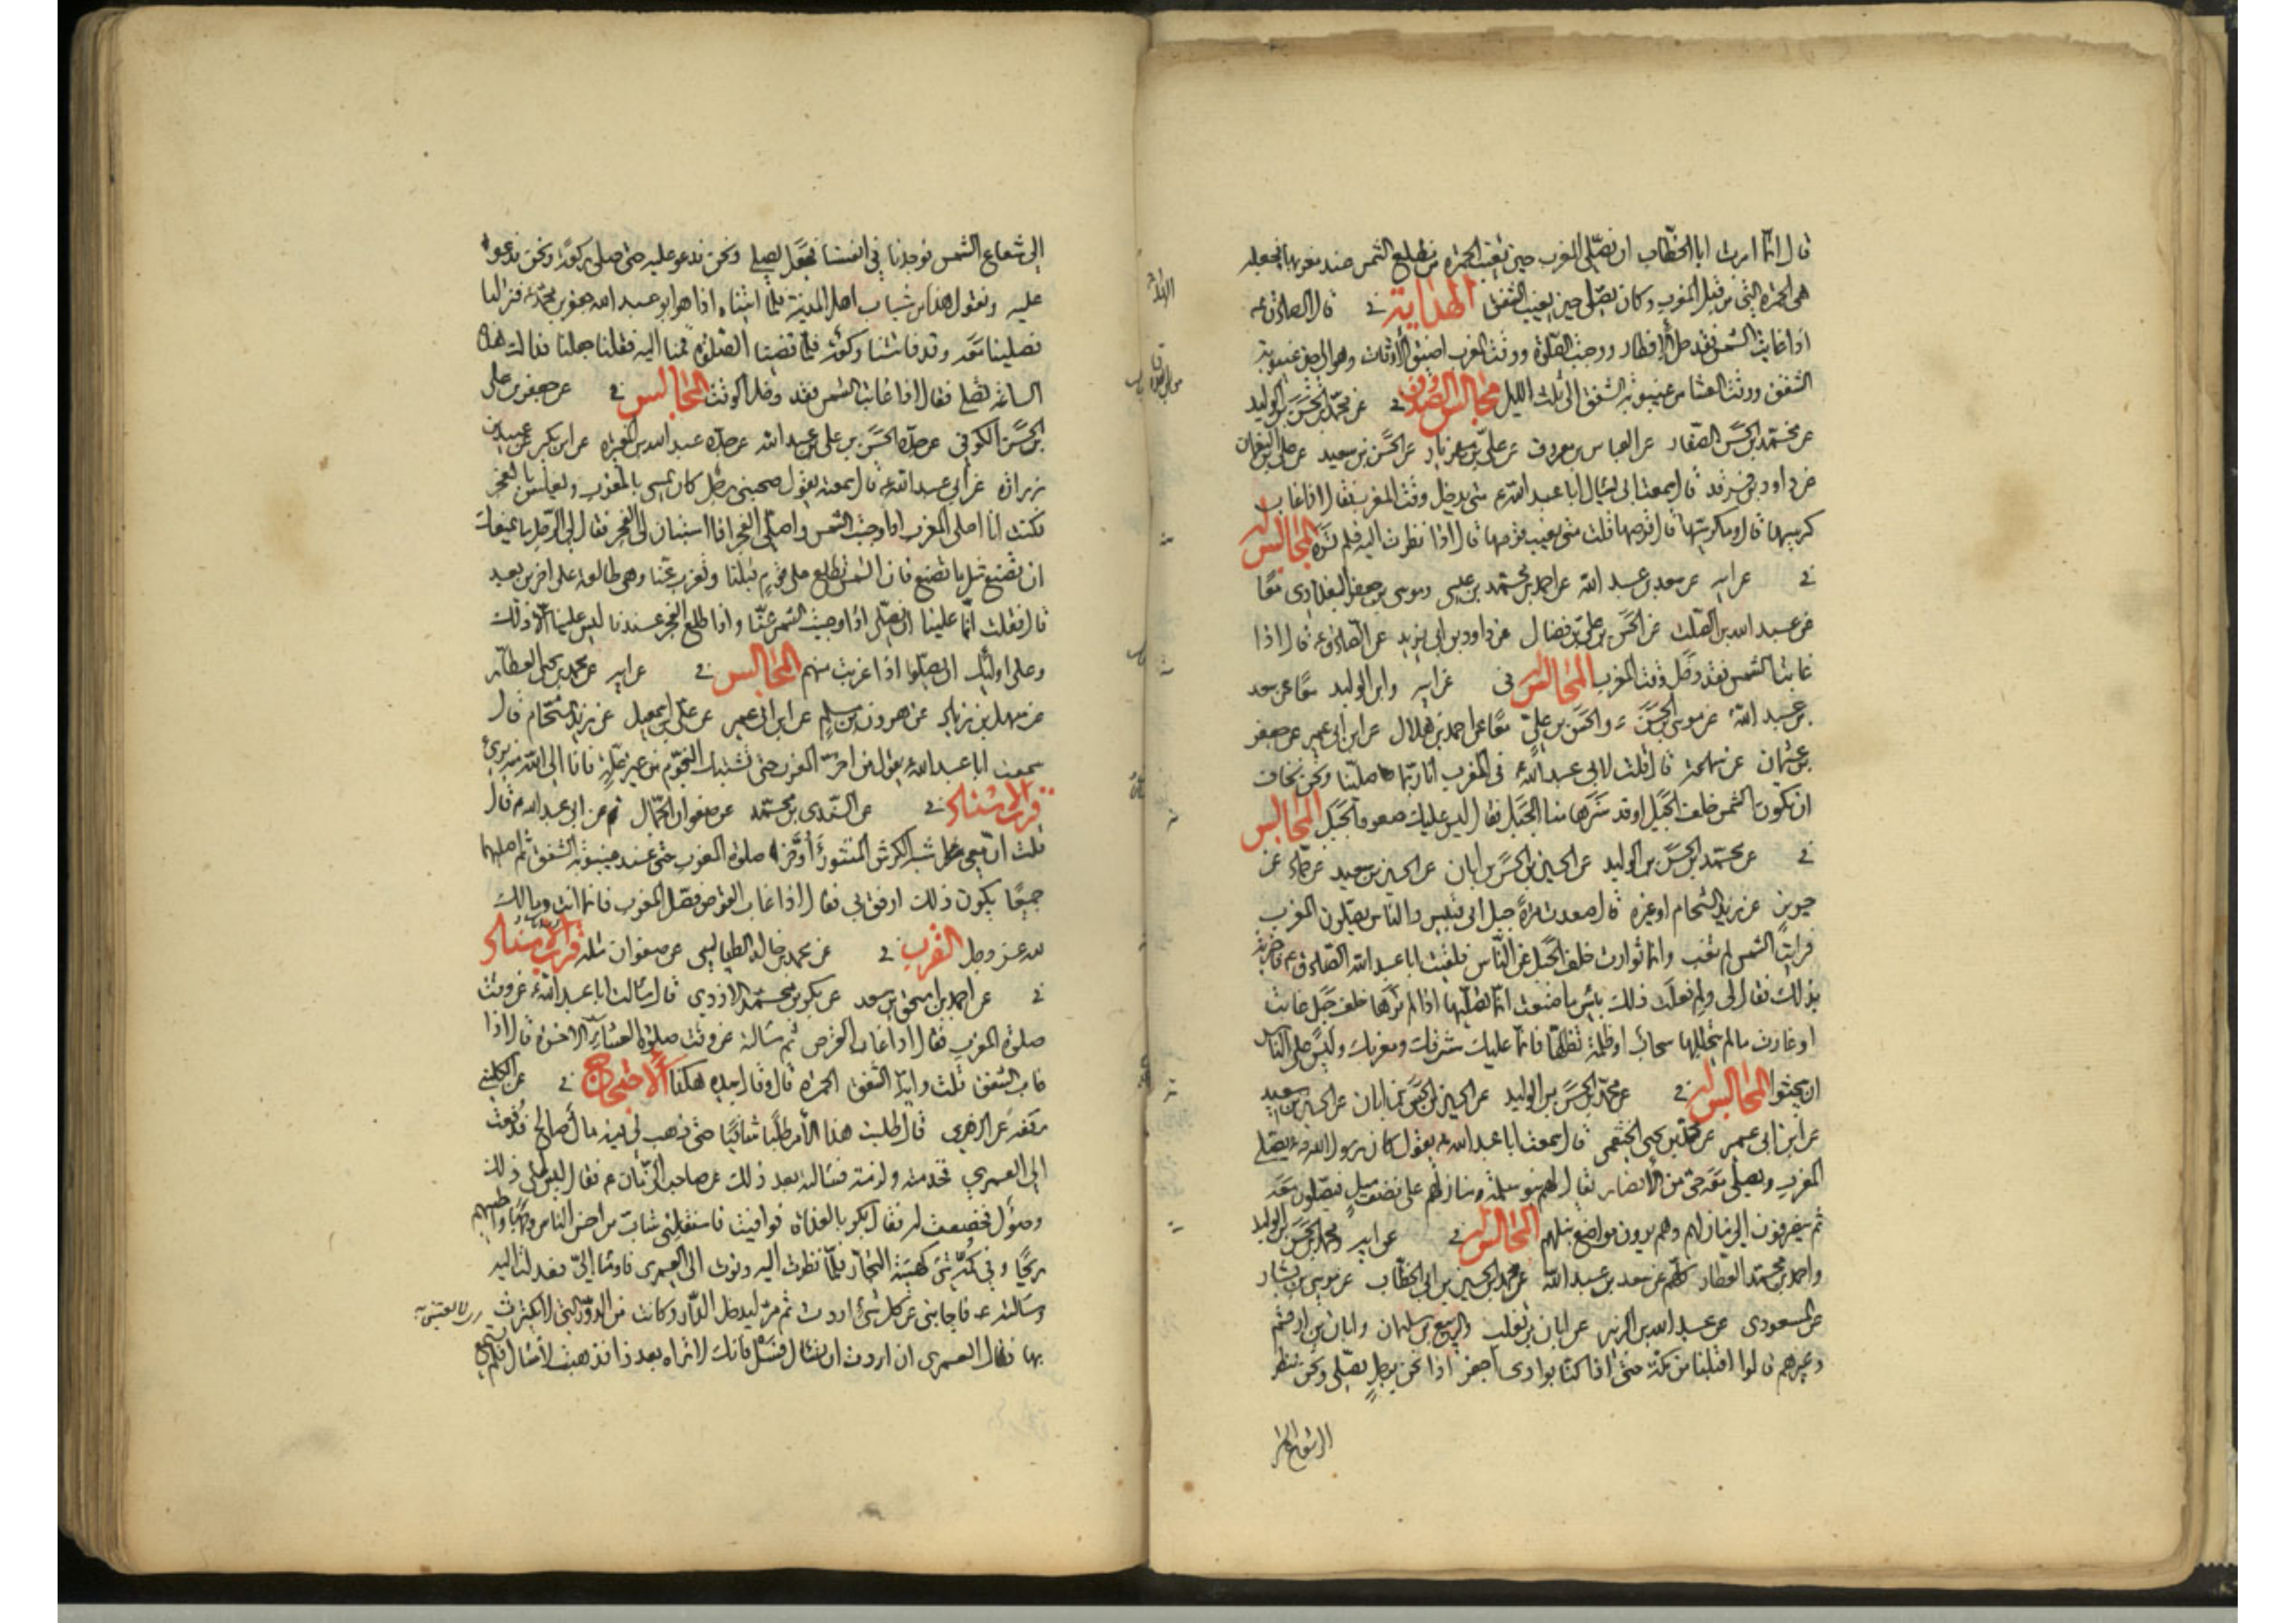 قال انما امرت ابا الخطاب ان يصلى المغرب حين تغيب الحمرة من مطلع الشمس عند مغربها فجعله
هى الحمرة التى من قبل المغرب وكان يصلى حين يغيب الشفق الهداية فى قال الصادق ع
اذا غابت الشمس فقد حل الافطار ووجبت الصلوة ووقت المغرب اضيق الاوقات وهو الى حين غيبوبة
الشفق ووقت العشا من غيبوبة الشفق الى ثلث الليل مجالس الصدوق فى عن محمد بن الحسن بن الوليد
عن محمد بن الحسن الصفار عن العباس بن معروف عن على بن مهزيار عن الحسن بن سعيد عن على بن النعمان
عن داود بن فرقد قال سمعت ابى يسال ابا عبد الله ع متى يدخل وقت المغرب فقال اذا غاب
كرسيها قال وما كرسيها قال قرصها قلت متى يغيب قرصها قال اذا نظرت اليه فلم تره المجالس
فى عن ابيه عن سعد بن عبد الله عن احمد بن محمد بن عيسى وموسى بن جعفر البغدادى معا
عن عبد الله بن الصلت عن الحسن بن على بن فضال عن داود بن ابى يزيد عن الصادق ع قال اذا
غابت الشمس فقد دخل وقت المغرب المجالس فى عن ابيه وابن الوليد معا عن سعد
بن عبد الله عن موسى بن الحسن والحسن بن على معا عن احمد بن هلال عن ابن ابى عمير عن جعفر
بن عثمان عن سماعة قال قلت لابى عبد الله ع فى المغرب انا ربما صلينا ونحن نخاف
ان تكون الشمس خلف الجبل او قد سترها منا الجبل فقال ليس عليك صعود الجبل المجالس
فى عن محمد بن الحسن بن الوليد عن الحسين بن الحسن بن ابان عن الحسين بن سعيد عن حماد عن
حريز عن زيد الشحام او غيره قال صعدت مرة جبل ابى قبيس والناس يصلون المغرب
فرايت الشمس لم تغب وانما توارت خلف الجبل عن الناس فلقيت ابا عبد الله الصادق ع فاخبرته
بذلك فقال لى ولم فعلت ذلك بئس ما صنعت انما تصليها اذا لم ترها خلف جبل غابت
او غارت ما لم يتجللها سحاب او ظلمة تظلها فانما عليك مشرقك ومغربك وليس على الناس
ان يبحثوا المجالس فى عن محمد بن الحسن بن الوليد عن الحسين بن الحسن بن ابان عن الحسين بن سعيد
عن ابن ابى عمير عن محمد بن يحيى الخثعمى قال سمعت ابا عبد الله ع يقول كان رسول الله ص يصلى
المغرب ويصلى معه حى من الانصار يقال لهم بنو سلمة ومنازلهم على نصف ميل فيصلون معه
ثم ينصرفون الى منازلهم وهم يرون مواضع نبلهم المجالس فى عن ابيه ومحمد بن الحسن بن الوليد
واحمد بن محمد العطار كلهم عن سعد بن عبد الله عن محمد بن الحسين بن ابى الخطاب عن موسى بن بشار
عن المسعودى عن عبد الله بن الزبير عن ابان بن تغلب والربيع بن سليمان وابان بن ارقم
وغيرهم قالوا اقبلنا من مكة حتى اذا كنا بوادى اجفر اذا نحن برجل يصلى ونحن ننظر
الى شعاع الشمس فوجدنا فى انفسنا فجعل يصلى ونحن ندعو عليه حتى صلى ركعة ونحن ندعو
عليه ونقول هذا من شباب اهل المدينة فلما اتيناه اذا هو ابو عبد الله جعفر بن محمد ع فنزلنا
فصلينا معه وقد فاتتنا ركعة فلما قضينا الصلوة قمنا اليه فقلنا جعلنا فداك هذه
الساعة تصلى فقال اذا غابت الشمس فقد دخل الوقت المجالس فى عن جعفر بن على
بن الحسن الكوفى عن جده الحسن بن على بن عبد الله عن جده عبد الله بن المغيرة عن ابن بكير عن عبيد بن
زرارة عن ابى عبد الله ع قال سمعته يقول صحبنى رجل كان يمسى بالمغرب ويغلس بالفجر
فكنت انا اصلى المغرب اذا وجبت الشمس واصلى الفجر اذا استبان لى الفجر فقال لى الرجل ما يمنعك
ان تصنع مثل ما اصنع فان الشمس تطلع على قوم قبلنا وتغرب عنا وهى طالعة على اخرين بعد
قال فقلت انما علينا ان نصلى اذا وجبت الشمس عنا واذا طلع الفجر عندنا ليس علينا الا ذلك
وعلى اولئك ان يصلوا اذا غربت عنهم المجالس فى عن ابيه عن محمد بن يحيى العطار
عن سهل بن زياد عن هرون بن مسلم عن ابن ابى عمير عن على بن اسمعيل عن زيد الشحام قال
سمعت ابا عبد الله ع يقول من اخر المغرب حتى تشتبك النجوم من غير علة فانا الى الله منه برىء
قرب الاسناد فى عن السندى بن محمد عن صفوان الجمال عن ابى عبد الله ع قال
قلت ان معى شبه الكرش المنثور أؤخر صلوة المغرب حتى عند غيبوبة الشفق ثم اصليهما
جميعا يكون ذلك ارفق بى فقال اذا غاب القرص فصل المغرب فانما انت ومالك
لله عز وجل القرب فى عن محمد بن خالد الطيالسى عن صفوان مثله قرب الاسناد
فى عن احمد بن اسحق بن سعد عن بكر بن محمد الازدى قال سالت ابا عبد الله ع عن وقت
صلوة المغرب فقال اذا غاب القرص ثم سالته عن وقت صلوة العشاء الاخرة قال اذا
غاب الشفق قلت واية الشفق الحمرة قال وقال بيده هكذا الاحتجاج فى عن الكلينى
رفعه عن الزهرى قال طلبت هذا الامر طلبا شاقيا حتى ذهب لى فيه مال صالح فدفعت
الى العمرى فخدمته ولزمته فسالته بعد ذلك عن صاحب الزمان ع فقال ليس الى ذلك
وصول فخضعت له فقال بكر بالغداة فوافيت فاستقبلنى شاب من احسن الناس وجها واطيبهم
ريحا وفى كمه شىء كهيئة التجار فلما نظرت اليه دنوت الى العمرى فاومأ الى فعدلت اليه
وسالته ع فاجابنى عن كل شىء اردت ثم مر ليدخل الدار وكانت من الدور التى لا يكترث
بها فقال العمرى ان اردت ان تسال فسل فانك لا تراه بعد ذا فذهبت لاسال فلم يستمع